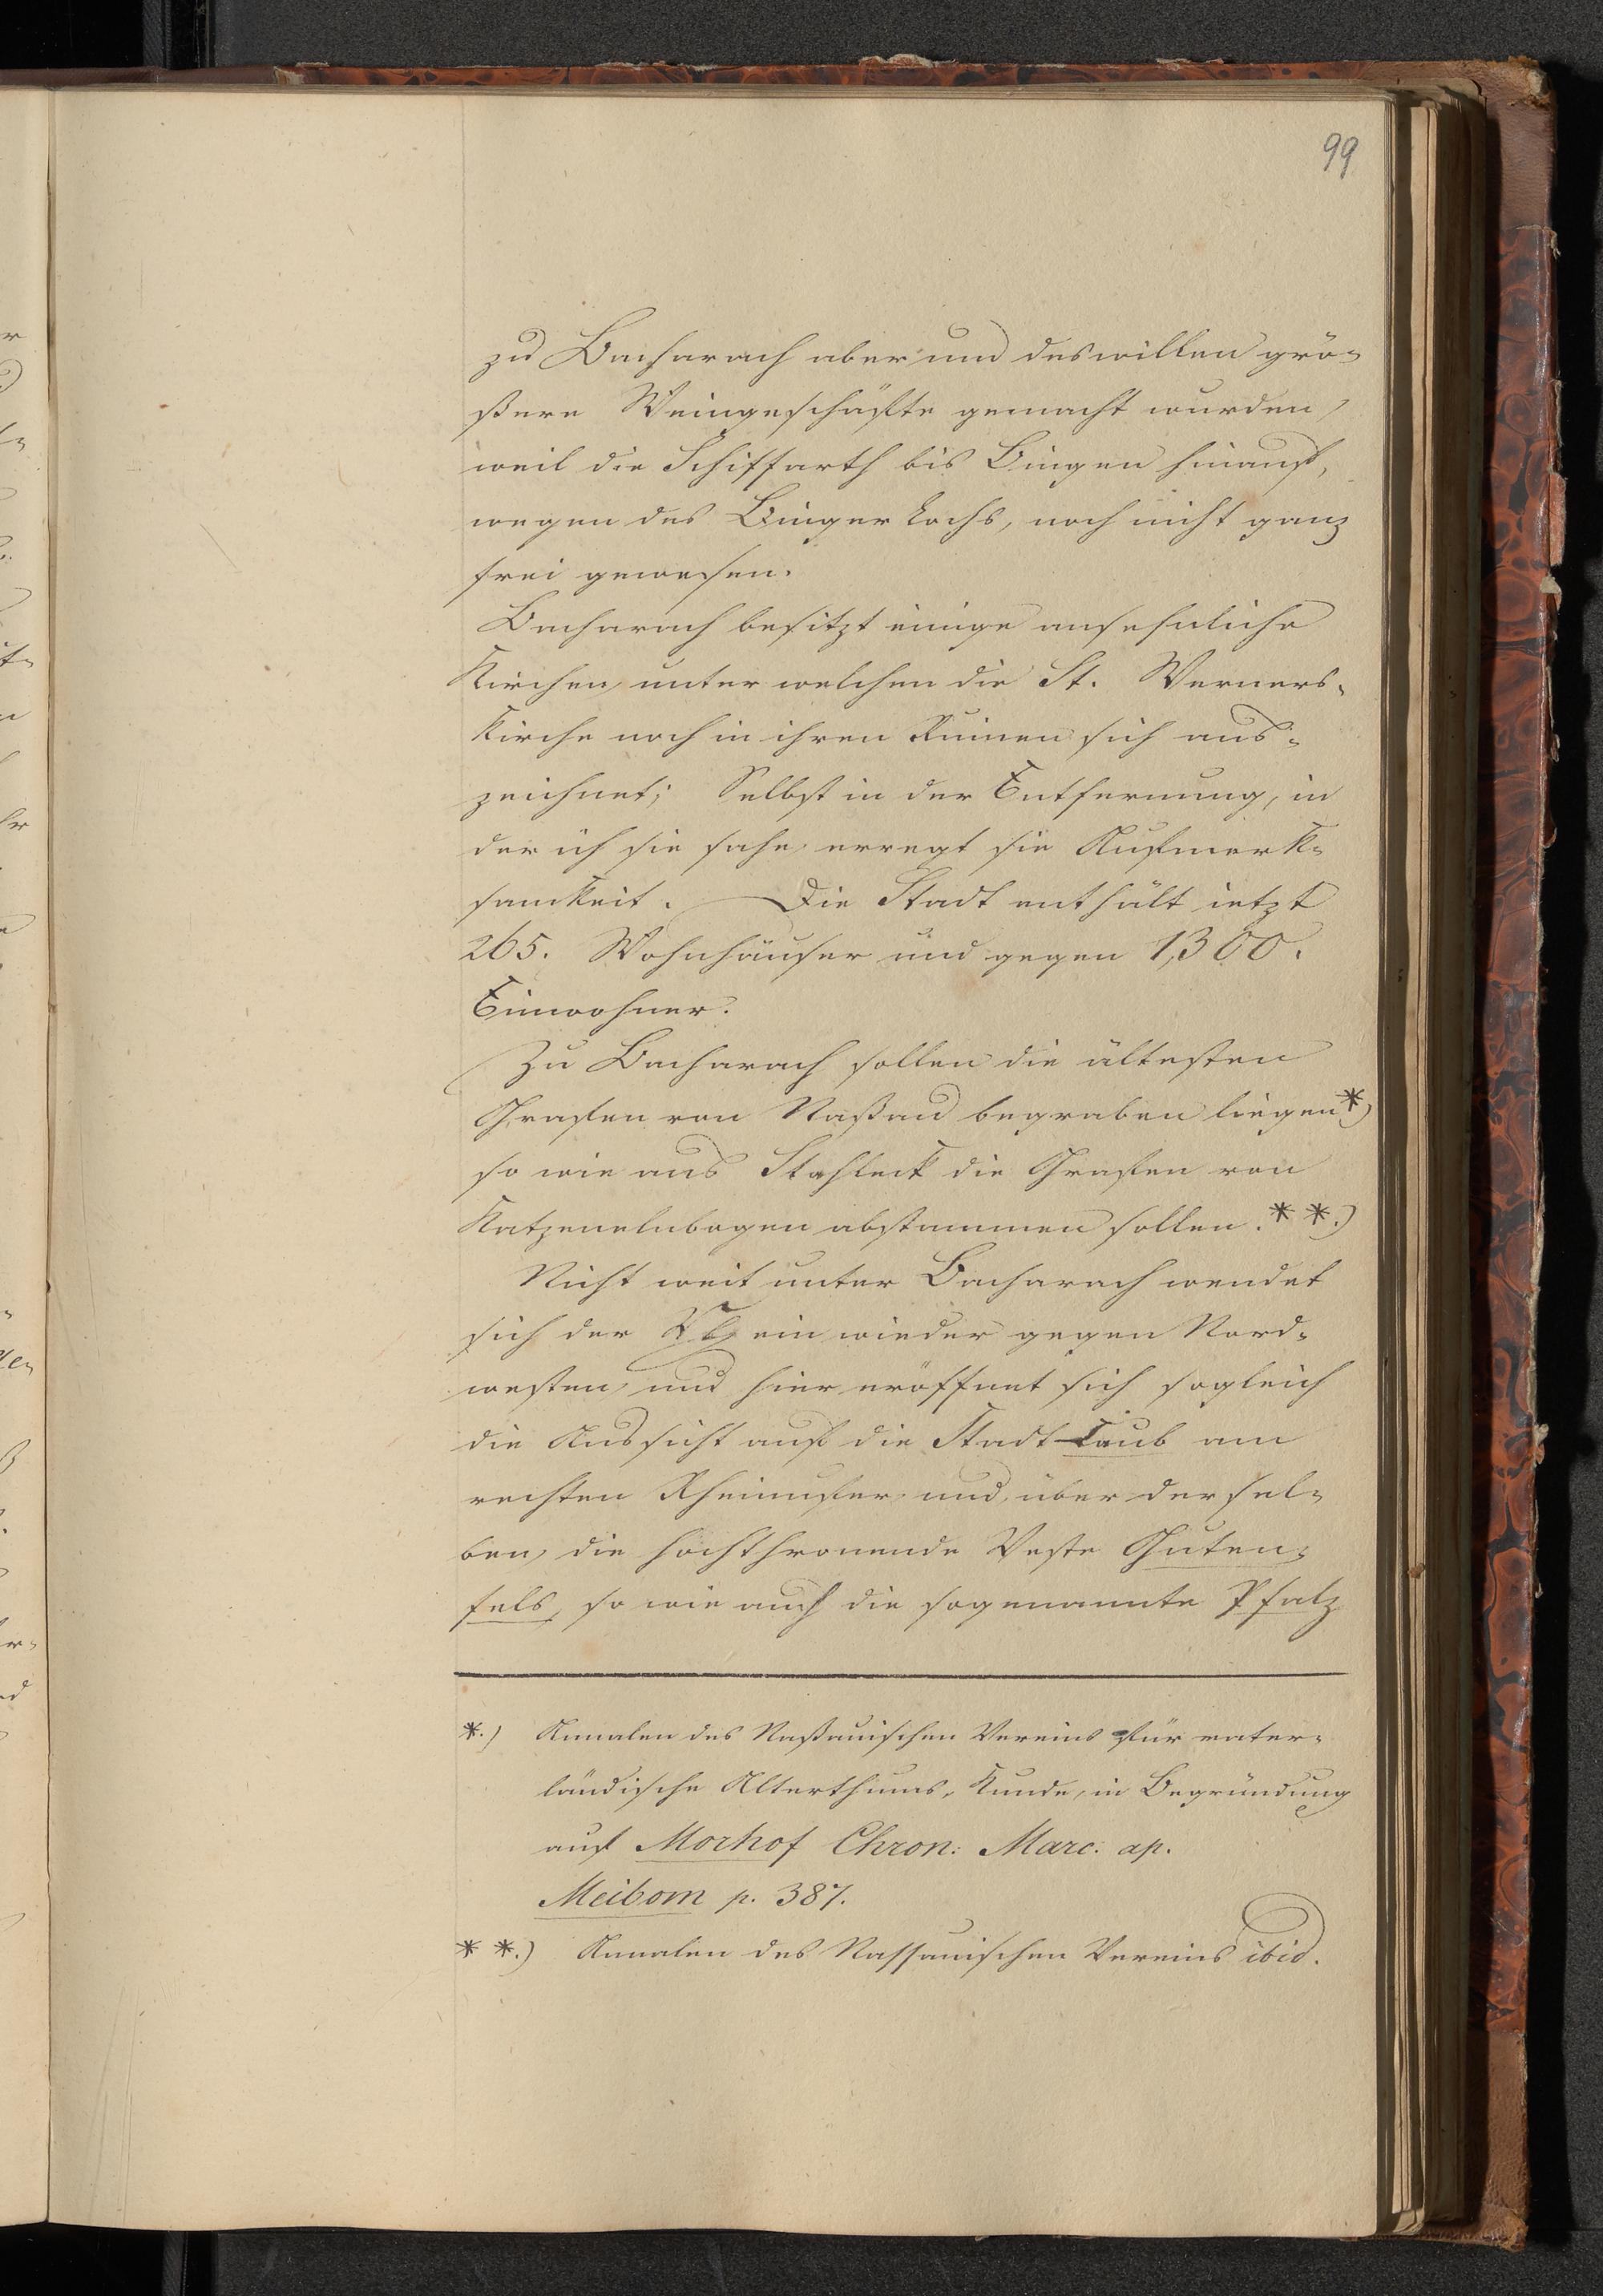 99
zu Bacharach aber um deswillen grö-
ßere Weingeschäfte gemacht wurden,
weil die Schiffarth bis Bingen hinauf,
wegen des Binger Lochs, noch nicht ganz
frei gewesen.
Bacharach besitzt einige ansehnliche
Kirchen, unter welchen die St. Werners-
Kirche noch in ihren Ruinen sich aus-
zeichnet; Selbst in der Entfernung, in
der ich sie sahe, erregt sie Aufmerk-
samkeit. Die Stadt enthält ietzt
265. Wohnhäuser und gegen 1,300.
Einwohner.
Zu Bacharach sollen die ältesten
Grafen von Naßau begraben liegen *)
so wie aus Stahleck die Grafen von
Katzenelnbogen abstammen sollen. **.)
Nicht weit unter Bacharach wendet
sich der Rhein wieder gegen Nord-
westen, und hier eröffnet sich sogleich
die Aussicht auf die Stadt Caub am
rechten Rheinufer und, über dersel-
ben, die hochthronende Veste Guten-
fels, so wie auch die sogenannte Pfalz
*.) Annalen des Naßauischen Vereins für vater-
ländische Alterthums-Kunde, in Begründung
auf Morhof Chron: Marc. ap.
Meibom p. 387.
**.) Annalen des Nassauischen Vereins ibid.